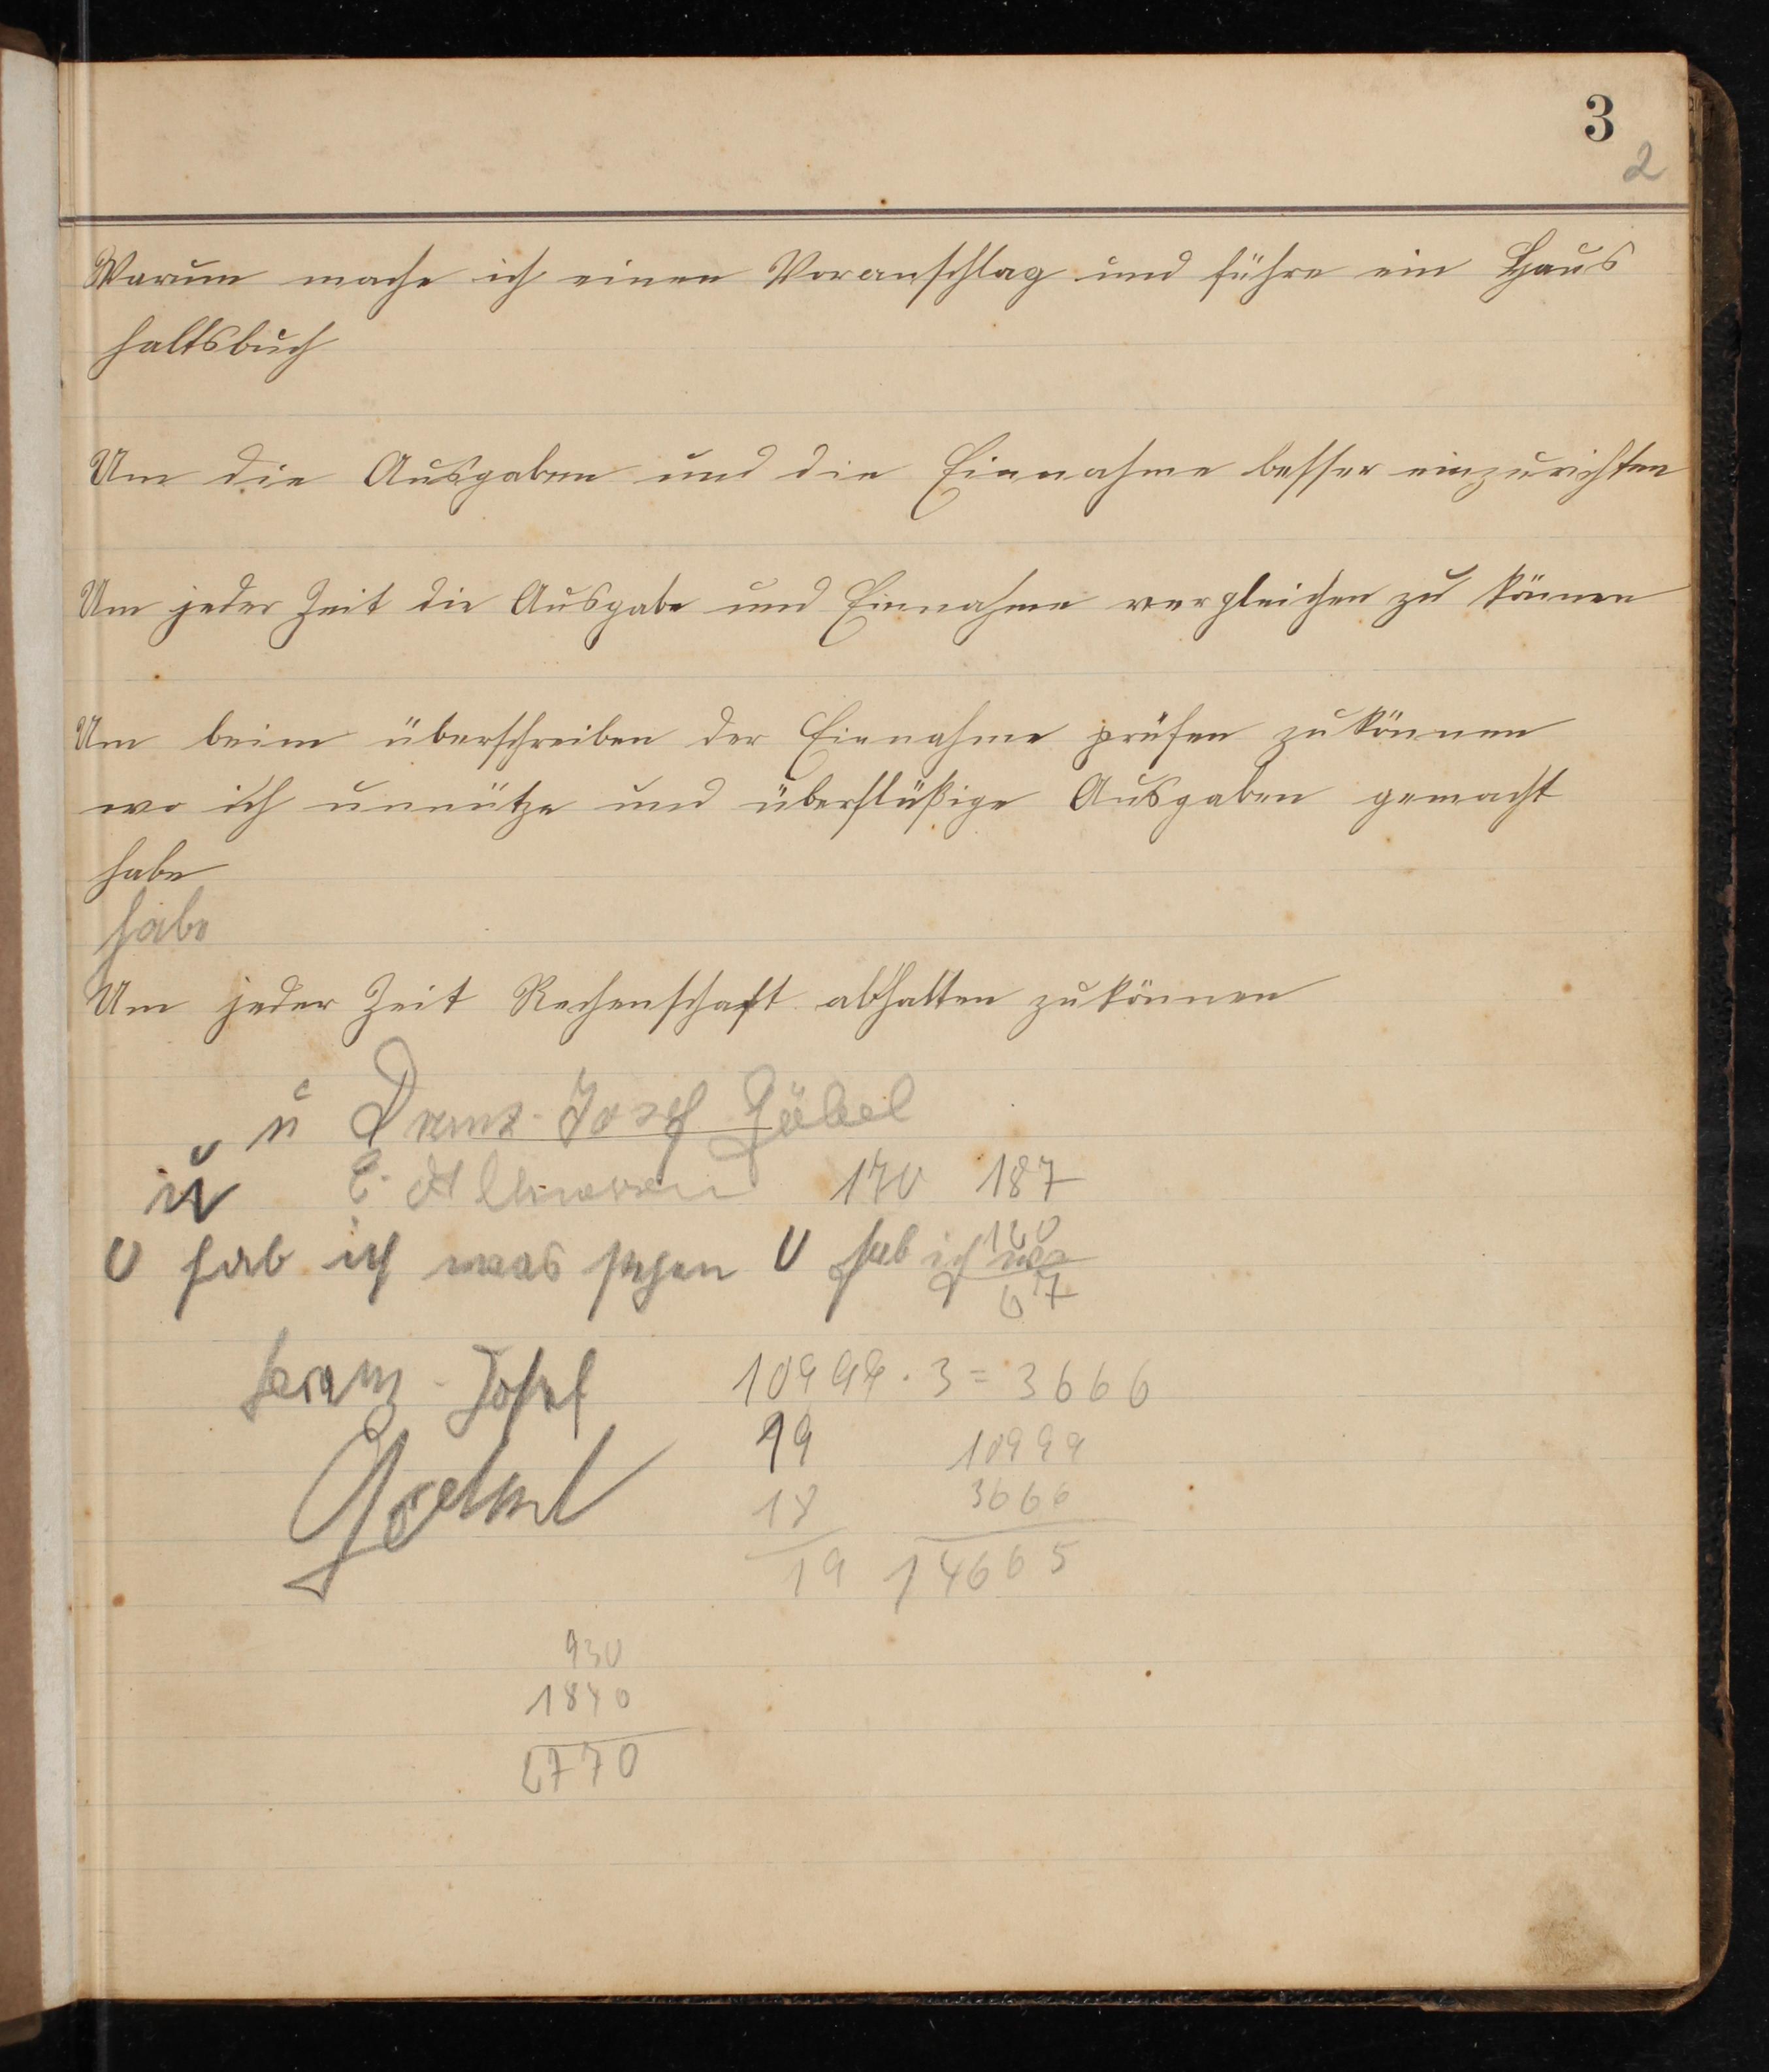 3
2
Warum mache ich einen Voranschlag und führe ein Haus
haltsbuch
Um die Ausgaben und die Einnahme besser einzurichten
Um jeder Zeit die Ausgabe und Einnahme vergleichen zu können
Um beim überschreiben der Einnahme prüfen zu können
wo ich unnütze und überflüßige Ausgaben gemacht
habe
habe
Um jeder Zeit Rechenschaft abhalten zu können
u Josef Göbel
u 170 187
120
U hab ich was U hab ich
67
Franz-Josef 10999 . 3 = 3666
19 10999
18 3666
19 14665
930
1840
2770